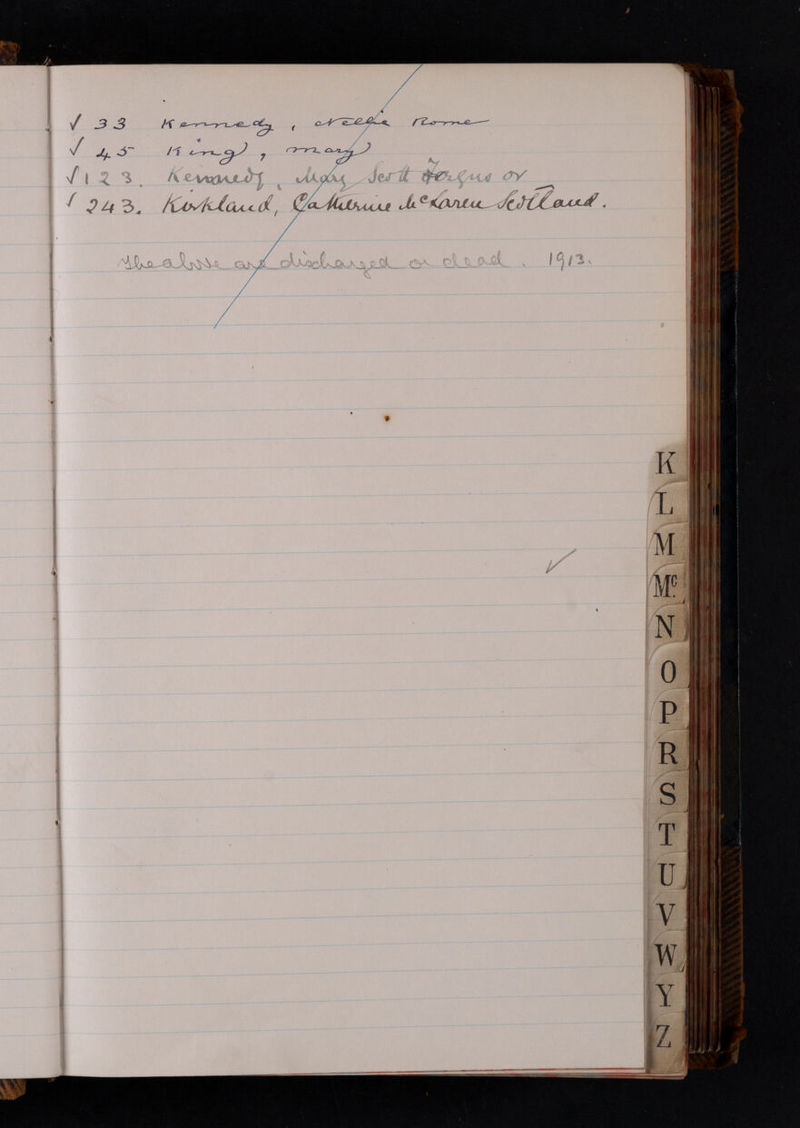 √ 33 Kennedy, Nellie Rome
√ 45 King, Mary
√ 123. Kennedy, Mary Scott Fergus or
√ 243. Kirkland, Catherine McLaren Scotland.
The above are discharged or dead. 1913.
K
L
M
Mc
N
O
P
R
S
T
U
V
W
Y
Z